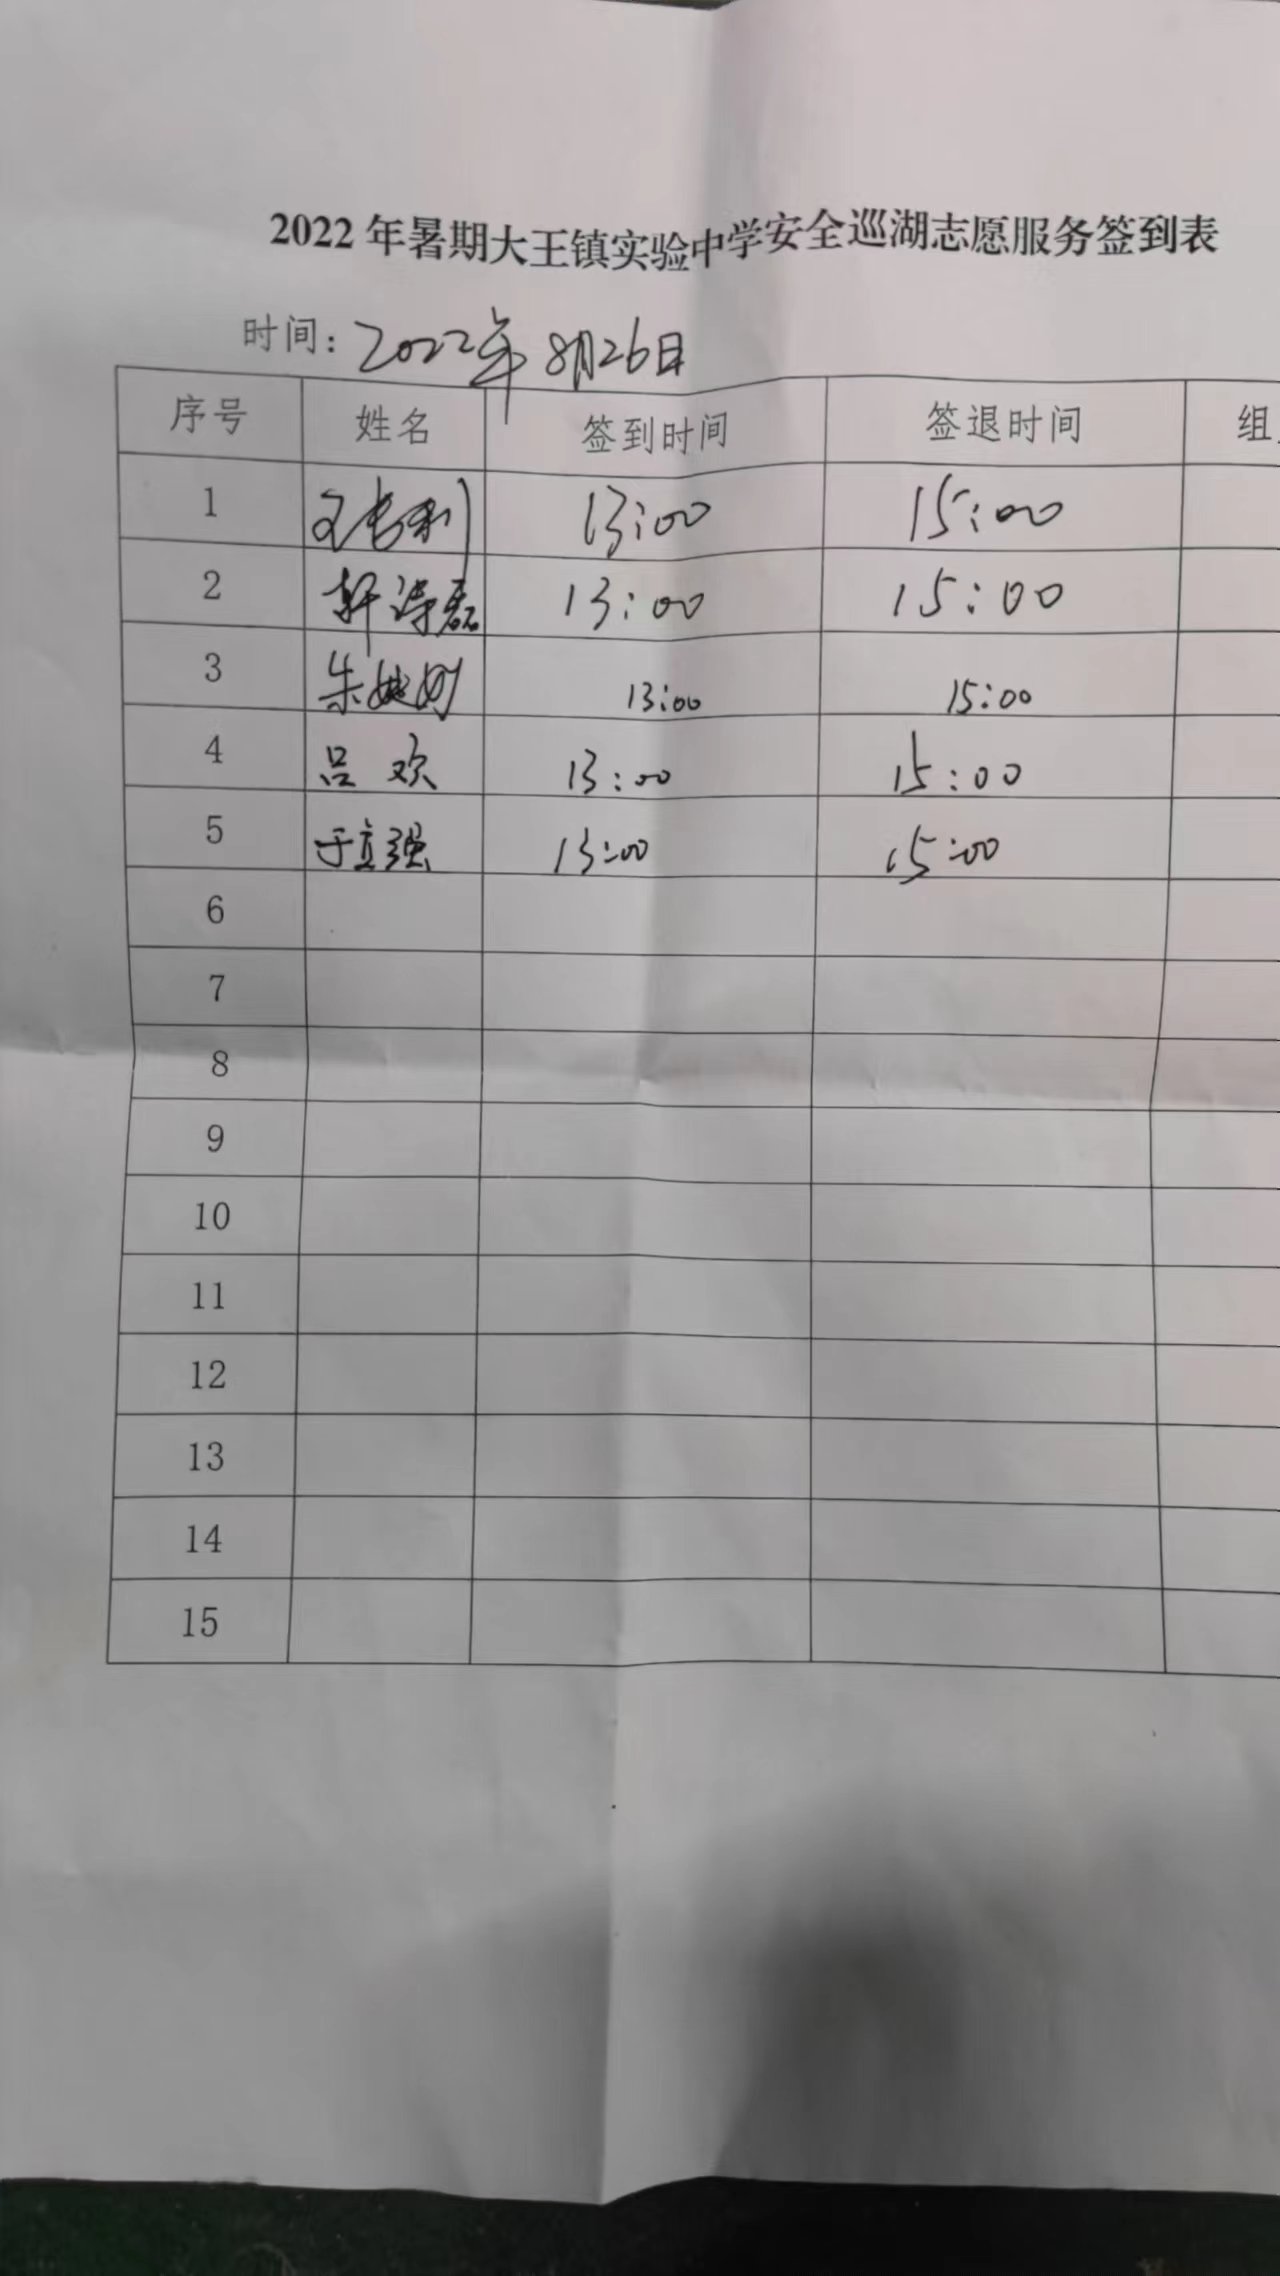 2022年暑期大王镇实验中学安全巡湖志愿服务签到表
时间：2022年8月26日
序号 姓名 签到时间 签退时间 组
1 王长利 13:00 15:00
2 轩涛磊 13:00 15:00
3 朱 13:00 15:00
4 吕欢 13:00 15:00
5 于立强 13:00 15:00
6
7
8
9
10
11
12
13
14
15